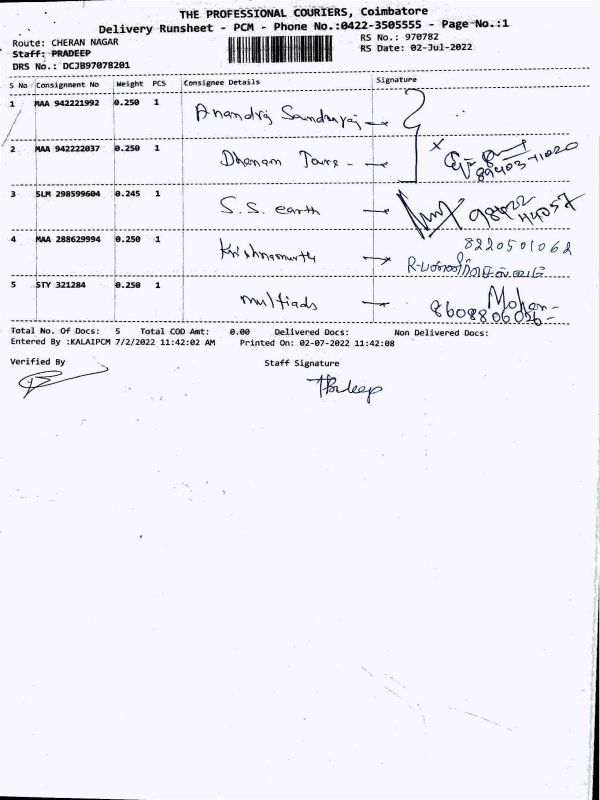 THE PROFESSIONAL COURIERS, Coimbatore
Delivery Runsheet - PCM - Phone No.:0422-3505555 - Page No.:1
Route: CHERAN NAGAR RS No.: 970782
Staff: PRADEEP RS Date: 02-Jul-2022
DRS No.: DCJB97078201
S No Consignment No Weight PCS Consignee Details Signature
1 MAA 942221992 0.250 1 Anandraj Sundraraj
2 MAA 942222037 0.250 1 Dhanam Tours - 89403-11020
3 SLM 298599604 0.245 1 S.S. earth 98422 44057
4 MAA 288629994 0.250 1 Krishnamurthi 8220501062
5 STY 321284 0.250 1 multiads Mohan
8608806056
Total No. Of Docs: 5 Total COD Amt: 0.00 Delivered Docs: Non Delivered Docs:
Entered By :KALAIPCM 7/2/2022 11:42:02 AM Printed On: 02-07-2022 11:42:08
Verified By Staff Signature
Pradeep